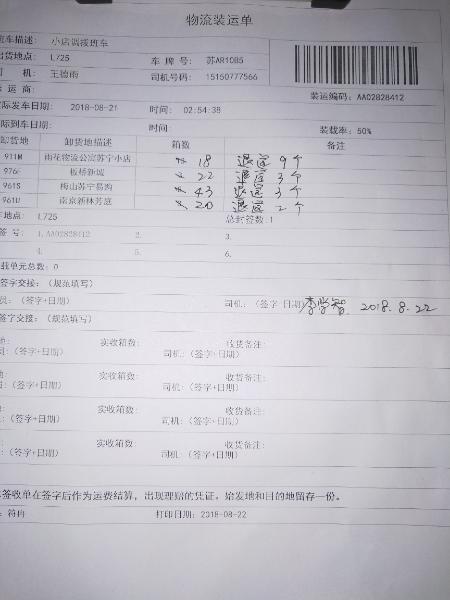 物流装运单
班车描述: 小店调拨班车
出货地点: L725 车牌号: 苏AR10B5
司机: 王德雨 司机号码: 15150777566
运商: 装运编码: AA02828412
实际发车日期: 2018-08-21 时间: 02:54:38
际到车日期: 时间: 装载率: 50%
卸货描述 箱数 备注
911M 雨花物流公寓苏宁小店 18 退筐 9个
976F 板桥新城 22 退筐 3个
961S 梅山苏宁易购 43 退筐 3个
961U 南京新林芳庭 20 退筐 2个
车地点: L725 总封签数:1
签号: 1.AA02828412 2. 3.
4. 5. 6.
载单元总数: 0
签字交接: (规范填写)
员: (签字+日期) 司机: (签字 日期) 李学智 2018.8.22
签字交接: (规范填写)
地: 实收箱数: 收货备注:
员: (签字+日期) 司机: (签字+日期)
地: 实收箱数: 收货备注:
员: (签字+日期) 司机: (签字+日期)
地: 实收箱数: 收货备注:
员: (签字+日期) 司机: (签字+日期)
签收单在签字后作为运费结算, 出现理赔的凭证, 始发地和目的地留存一份。
: 符冉 打印日期: 2018-08-22